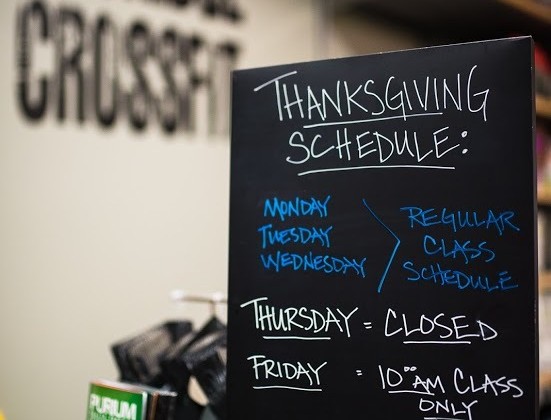 CROSSFIT
THANKSGIVING
SCHEDULE:
MONDAY
TUESDAY
WEDNESDAY
REGULAR
CLASS
SCHEDULE
THURSDAY = CLOSED
FRIDAY = 10:00AM CLASS
ONLY
PURIUM